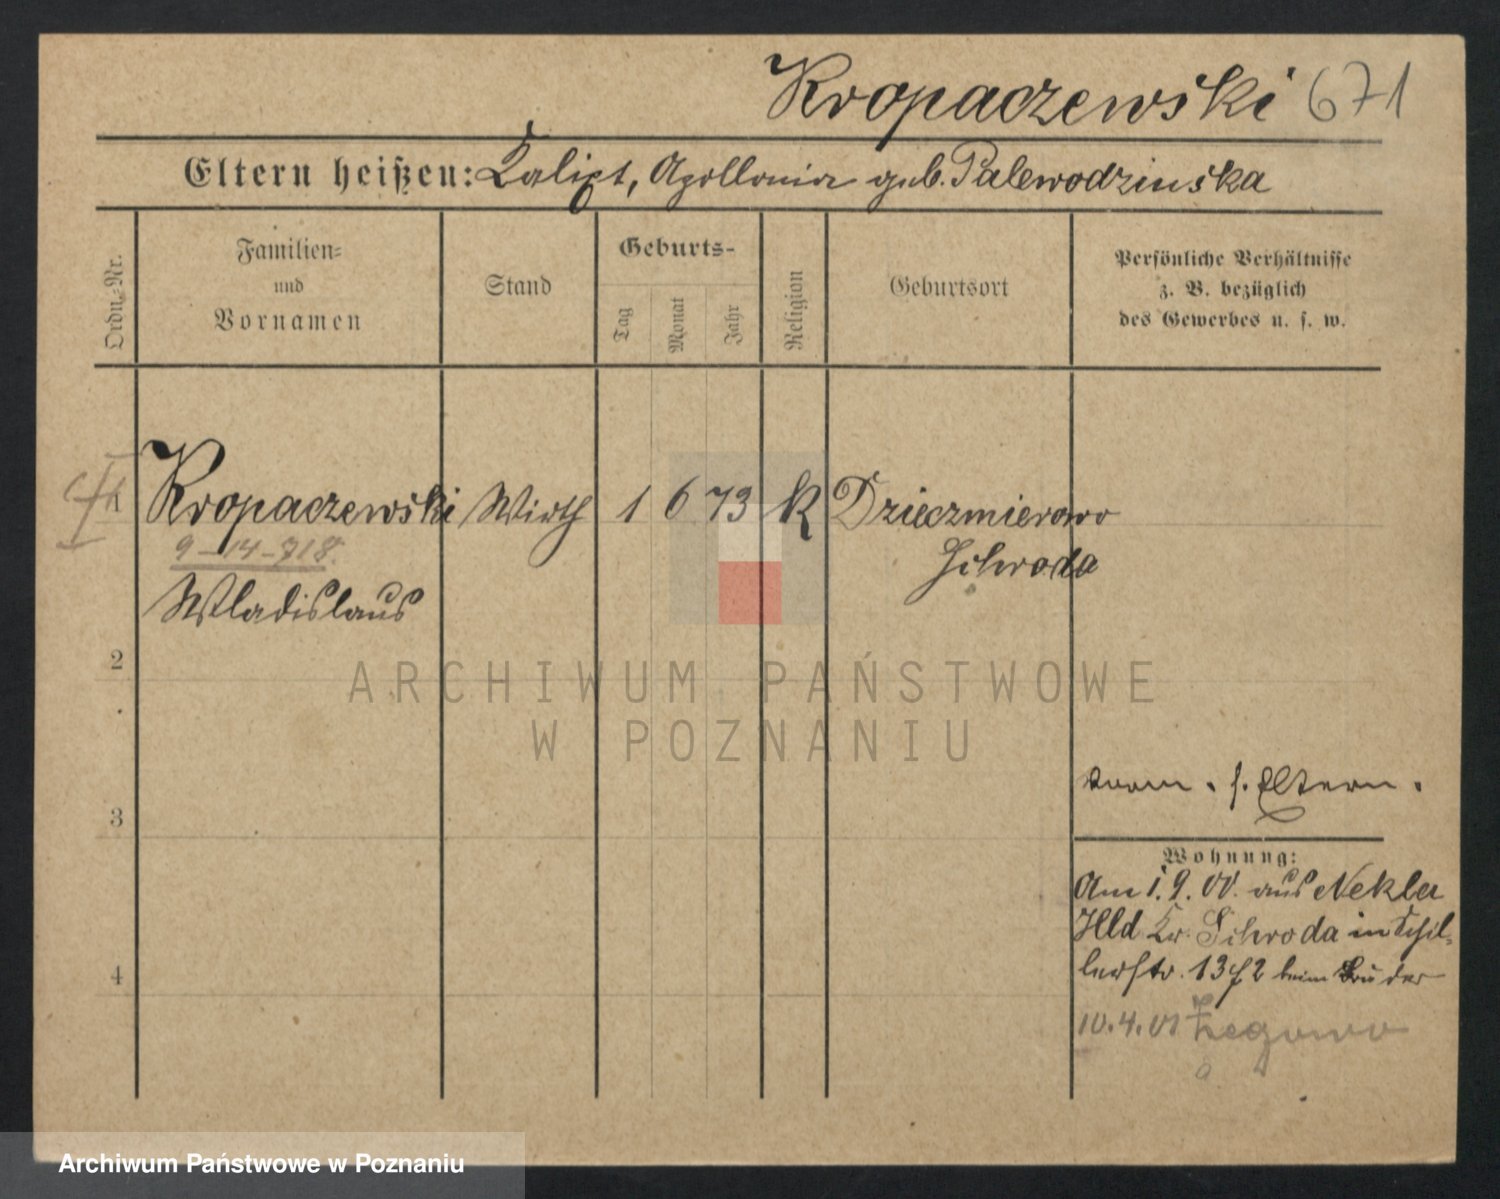 Kropaczewski 671
Eltern heißen: Kalixt, Apollonia geb. Palewodzinska
Ordn.-Nr.
Familien-
und
Vornamen
Stand
Geburts-
Tag
Monat
Jahr
Religion
Geburtsort
Persönliche Verhältnisse
z. B. bezüglich
des Gewerbes u. s. w.
1 Kropaczewski Wirth 1 6 73 k Dzieczmierowo
9-14-718.
Schroda
Wladislaus
2
ARCHIWUM PAŃSTWOWE
W POZNANIU
verm. s. Eltern.
3
Wohnung:
Am 1.9.00. aus Nekla
Hld Kr. Schroda in Schil-
lerstr. 13 f 2 beim Bruder
4
10.4.01 Zegowo
a
Archiwum Państwowe w Poznaniu